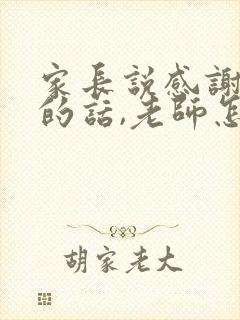 家長説感謝
的話,老師怎
胡家老大